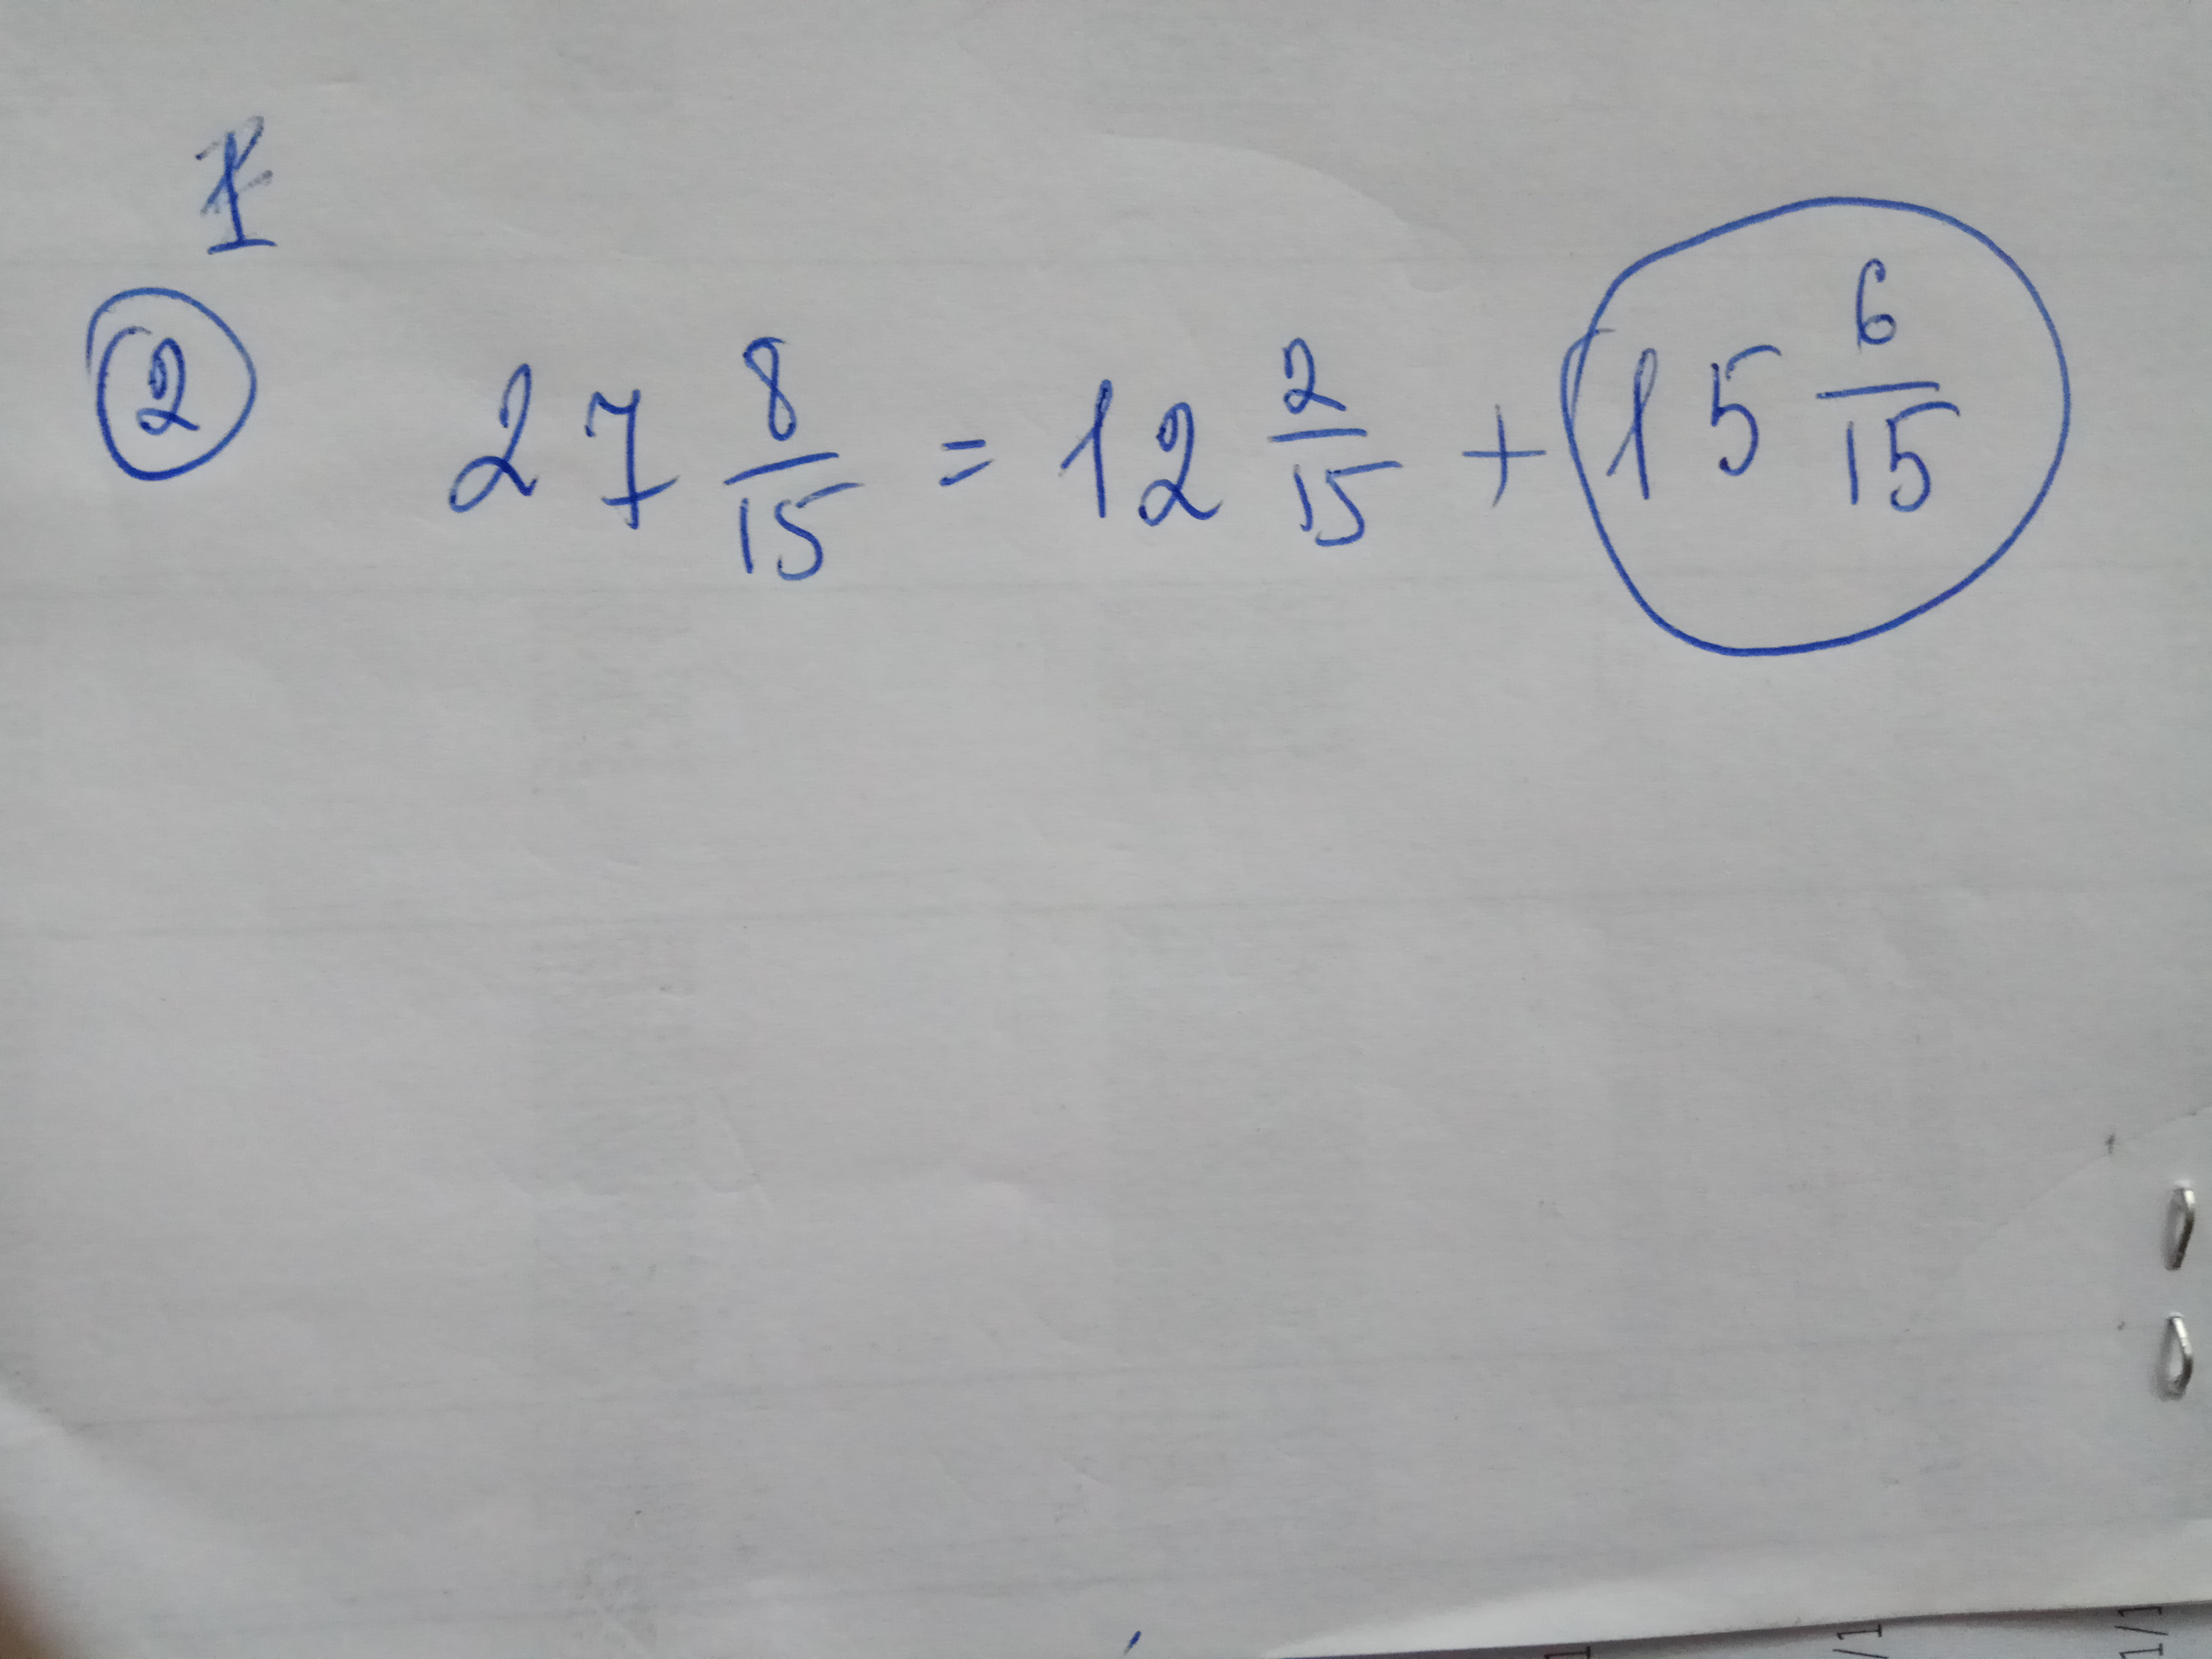 1
2 27 8/15 = 12 2/15 + 15 6/15